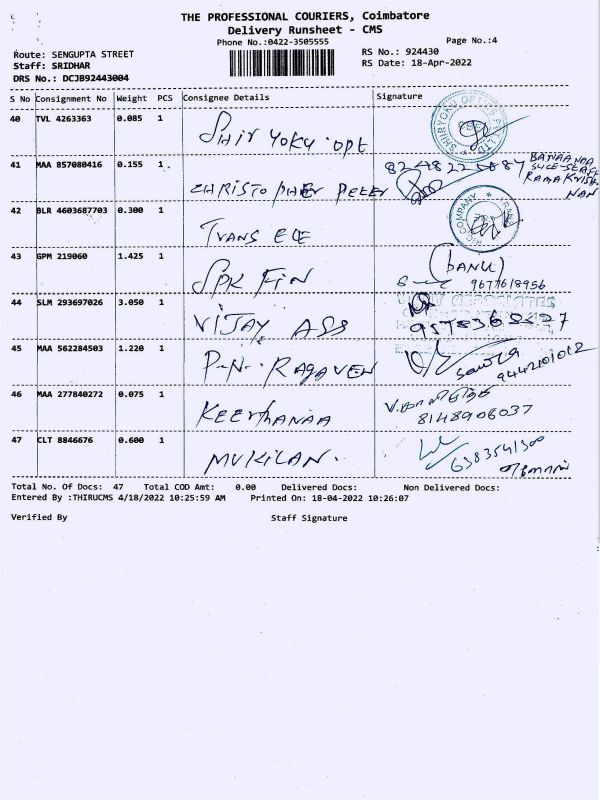 THE PROFESSIONAL COURIERS, Coimbatore
Delivery Runsheet - CMS
Phone No.:0422-3505555
Page No.:4
Route: SENGUPTA STREET
RS No.: 924430
Staff: SRIDHAR
RS Date: 18-Apr-2022
DRS No.: DCJB92443004
S No Consignment No Weight PCS Consignee Details Signature
40 TVL 4263363 0.085 1
SHIr YOKU OPt
41 MAA 857080416 0.155 1
CHRISTOPHER PETER
42 BLR 4603687703 0.300 1
TRANS ELE
43 GPM 219060 1.425 1
SPK FIN (BANU)
9677618956
44 SLM 293697026 3.050 1
VIJAY ASS
45 MAA 562284503 1.220 1
P.N. RAGAVEN
9442101012
46 MAA 277840272 0.075 1
KEERthANAA 8148906037
47 CLT 8846676 0.600 1
MUKILAN. 6383541300
Total No. Of Docs: 47 Total COD Amt: 0.00 Delivered Docs: Non Delivered Docs:
Entered By :THIRUCMS 4/18/2022 10:25:59 AM Printed On: 18-04-2022 10:26:07
Verified By Staff Signature